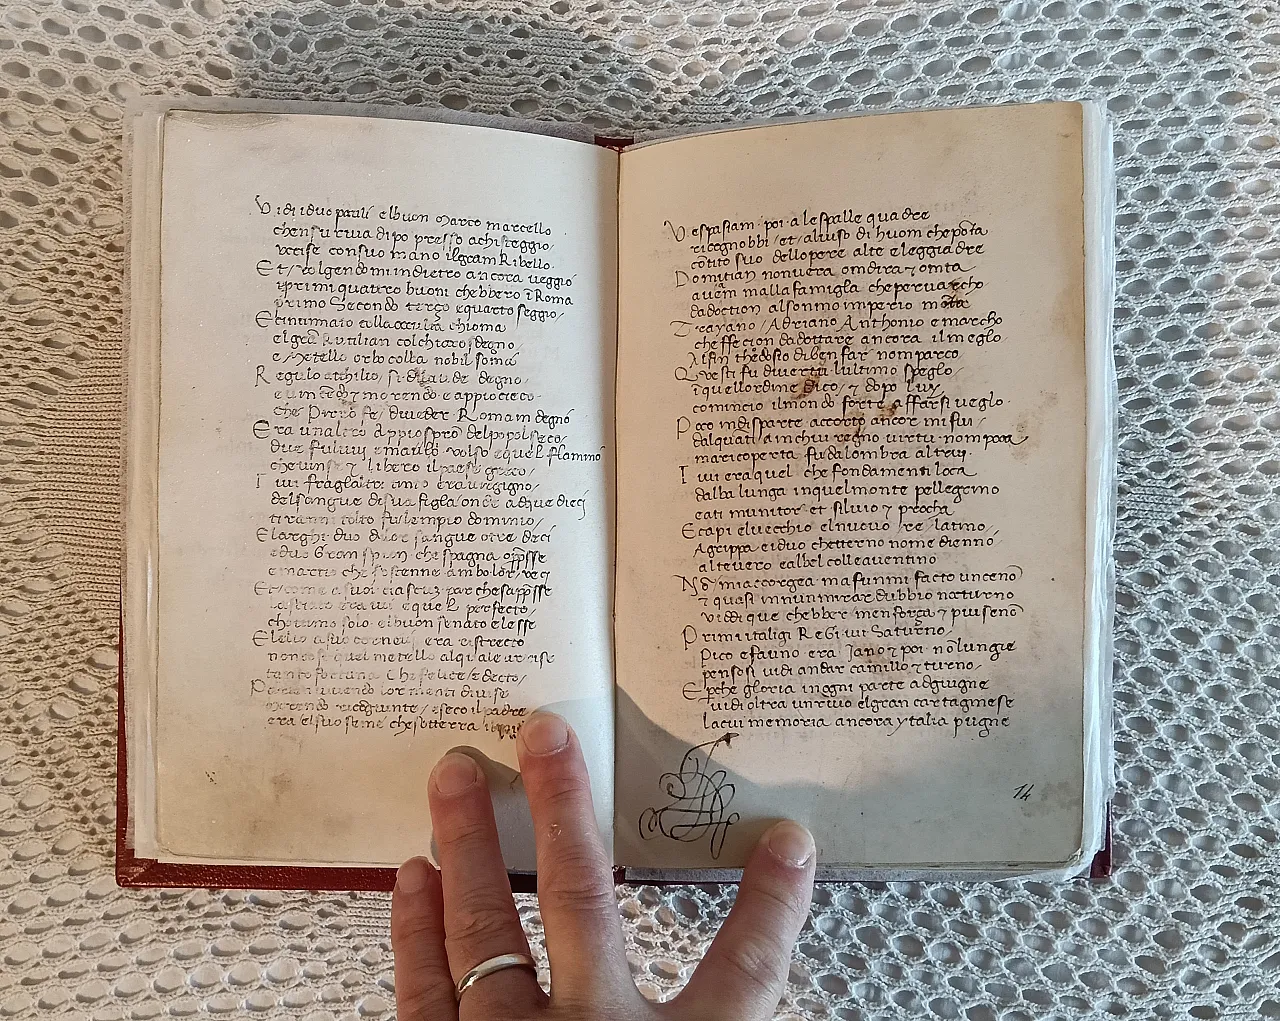 Vidi iduo pauli elbuon Marco marcello
chensu riva di po presso achisteggio
uccise consuo mano ilgram Ribello.
Et/ volgendomi indietro ancora veggio
iprimi quatro buoni chebbero ī Roma
primo Secondo terço equarto seggio/
Ecincinnato colla chioma
elgrā Rutilian colchiaro sdegno/
e Metello orbo colla nobil soma
Regulo atthilio/ si de degno/
e morendo e appio cieco
che Pirro fe/ diveder Roma in degno
Era unaltro Appio
due fuluii emanlio volso equel flammō
chevinse 7 libero il paese greco/
Ivi fraglialtri virgigno/
delsangue disua figla onde adque dieci
tiranni tolto fulempio dominio/
Elarghi duo sangue
eduo Gran spion che spagna opp̄sse
emartio che sostenne ambo lor veci
Et come asuoi ciascun par che
era equel perfecto/
chottimo solo elbuon senato elesse
Elelio era ristrecto
non quel metello alquale arrise
tanto fortuna che felice e decto/
vivendo lor menti divise
Morendo ricogiunte/ eseco il padre
era elsuo seme che sotterra
Vespasiam poi ale spalle quadre
ricognobbi/ et alviso di huom che pōta
cōtito suo dellopere alte eleggiadre
Domitian nonvera ondira 7 onta
avē malla famigla che per varcho
dadoction alsommo imperio mōta
Trayano/ Adriano Anthonio e marcho
cheffecion dadottare ancora ilmeglo
Alfin theodosio diben far nomparco
Questi fu diverzu lultimo speglo
iquellordine dico/ 7 dopo luy
comincio ilmondo forte affarsi veglo.
Poco indisparte accorto ancor mi fui
dalquati inchui regno virtu nom poca
maricoperta fu dalombra altrui.
Ivi era quel che fondamenti loca
dalba lunga inquelmonte pellegrino
eati munitor et silvio 7 procha
Ecapi elvecchio elnuovo re latino/
Agrippa eiduo chetterno nome diennō
altevero ealbel colleaventino
Nō miaccorgea ma funmi facto un cenō
7 quasi innunmirar dubbio nocturno
viddi que chebber men força 7 piu senō
Primi italigi ReGi ivi Saturno/
Pico efauno era Jano 7 poi nō lungie
pensosi vidi andar camillo 7 turno/
Ep̱che gloria inogni parte adgiugne
vidi oltra un rivo elgran cartaginese
lacui memoria ancora ytalia pugne
14